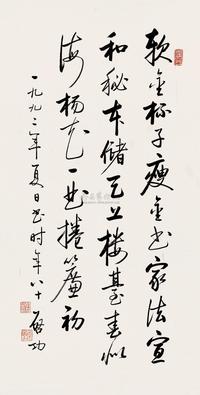 软金杯子瘦金书家法宣
和秘本储天上楼臺春似
海杨花一曲捲簾初
一九九二年夏日书时年八十 啟功